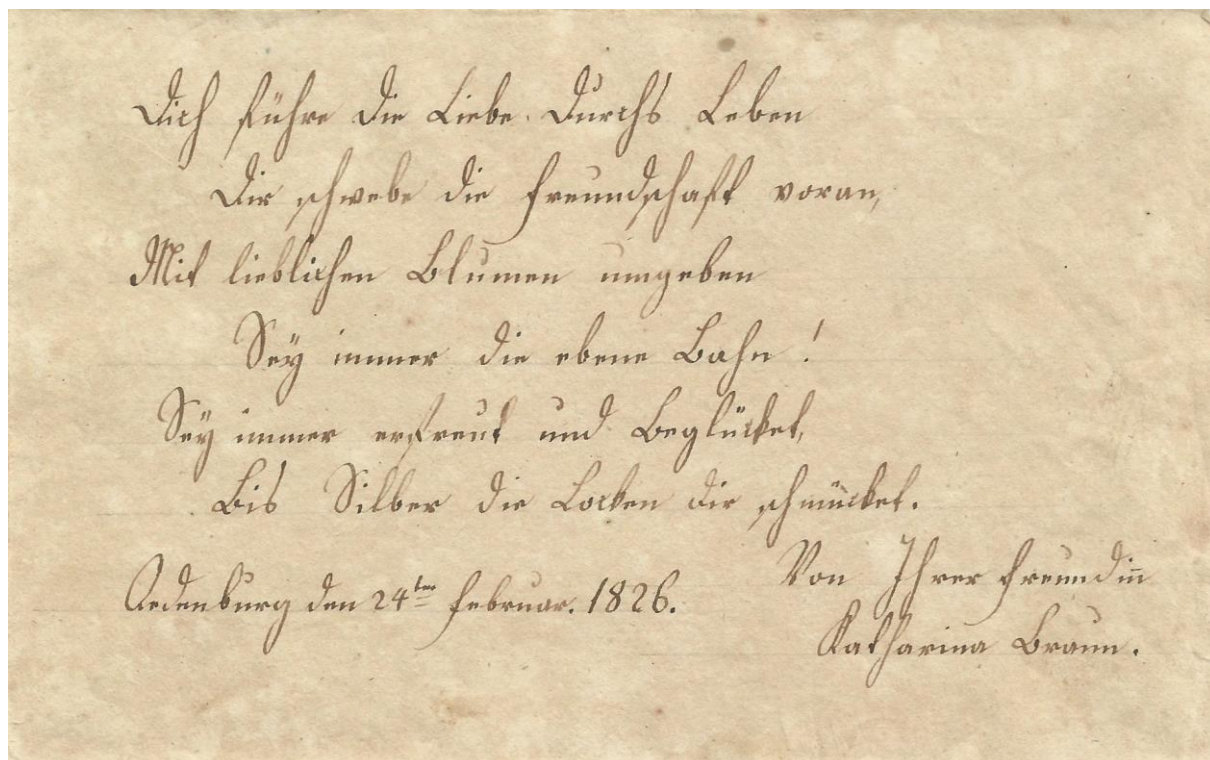 Dich führe die Liebe durchs Leben
Dir schwebe die Freundschaft voran,
Mit lieblichen Blumen umgeben
Sey immer die ebene Bahn!
Sey immer erfreut und beglücket,
Bis Silber die Locken dir schmücket.
Von Ihrer Freundinn
Oedenburg den 24ten Februar. 1826.
Katharina Braun.